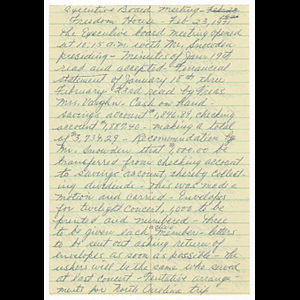 Executive Board Meeting -
Freedom House - Feb. 23, 1971
The Executive board meeting opened
at 10:15 a.m. with Mr. Snowden
presiding - Minutes of Jan. 19th
read and accepted - Financial
statement of January 18th thru
February 22nd read by Treas.
Mrs. Vaughn. Cash on hand -
Savings account $1,896.89, checking
account $1,837.40 - making a total
of $3,734.29 - Recommendation by
Mr. Snowden that $1,000.00 be
transferred from checking account
to Savings account, thereby collect-
ing dividends - This was made a
motion and carried - Envelopes
for twilight concert, 4000 to be
printed and numbered - three
to be given each Member - letters
to be sent out asking return of
envelopes as soon as possible - the
ushers will be the same who served
at last concert - Tentative arrange-
ments for North Carolina trip